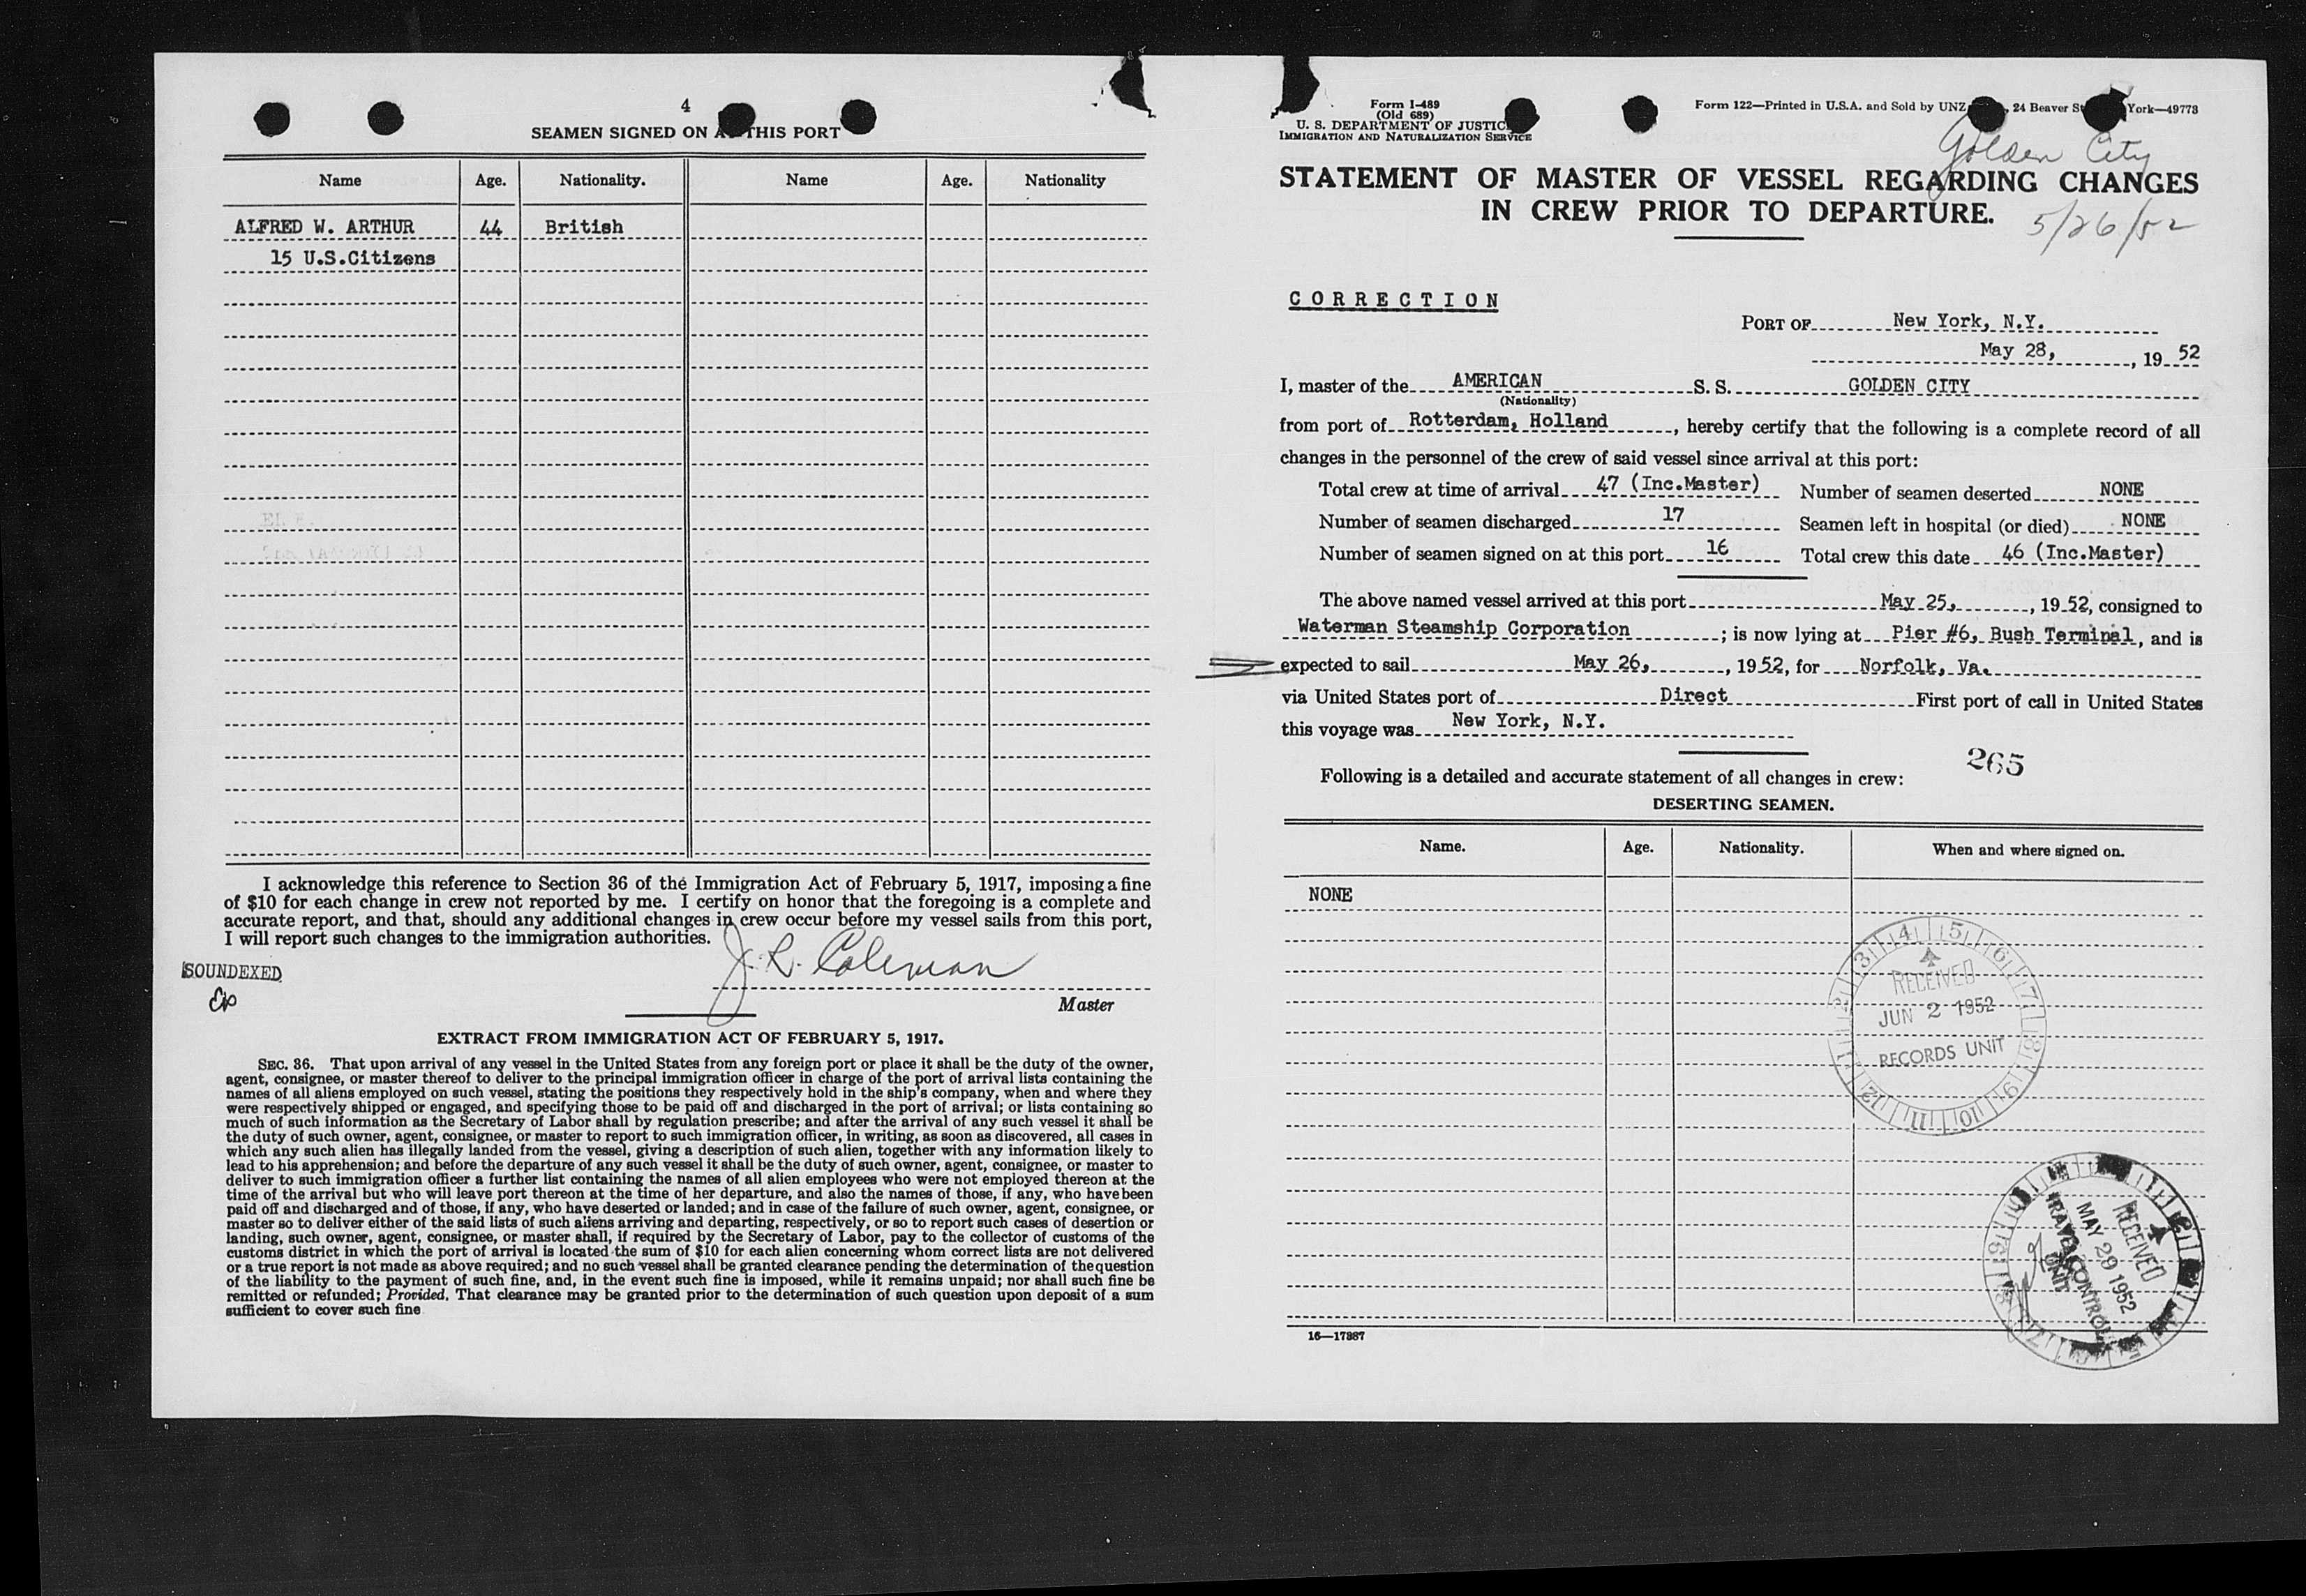 4
SEAMEN SIGNED ON A THIS PORT
Name Age. Nationality. Name Age. Nationality
ALFRED W. ARTHUR 44 British
15 U.S.Citizens
I acknowledge this reference to Section 36 of the Immigration Act of February 5, 1917, imposing a fine
of $10 for each change in crew not reported by me. I certify on honor that the foregoing is a complete and
accurate report, and that, should any additional changes in crew occur before my vessel sails from this port,
I will report such changes to the immigration authorities.
J. R. Coleman
SOUNDEXED
Master
EXTRACT FROM IMMIGRATION ACT OF FEBRUARY 5, 1917.
SEC. 36. That upon arrival of any vessel in the United States from any foreign port or place it shall be the duty of the owner,
agent, consignee, or master thereof to deliver to the principal immigration officer in charge of the port of arrival lists containing the
names of all aliens employed on such vessel, stating the positions they respectively hold in the ship's company, when and where they
were respectively shipped or engaged, and specifying those to be paid off and discharged in the port of arrival; or lists containing so
much of such information as the Secretary of Labor shall by regulation prescribe; and after the arrival of any such vessel it shall be
the duty of such owner, agent, consignee, or master to report to such immigration officer, in writing, as soon as discovered, all cases in
which any such alien has illegally landed from the vessel, giving a description of such alien, together with any information likely to
lead to his apprehension; and before the departure of any such vessel it shall be the duty of such owner, agent, consignee, or master to
deliver to such immigration officer a further list containing the names of all alien employees who were not employed thereon at the
time of the arrival but who will leave port thereon at the time of her departure, and also the names of those, if any, who have been
paid off and discharged and of those, if any, who have deserted or landed; and in case of the failure of such owner, agent, consignee, or
master so to deliver either of the said lists of such aliens arriving and departing, respectively, or so to report such cases of desertion or
landing, such owner, agent, consignee, or master shall, if required by the Secretary of Labor, pay to the collector of customs of the
customs district in which the port of arrival is located the sum of $10 for each alien concerning whom correct lists are not delivered
or a true report is not made as above required; and no such vessel shall be granted clearance pending the determination of the question
of the liability to the payment of such fine, and, in the event such fine is imposed, while it remains unpaid; nor shall such fine be
remitted or refunded; Provided, That clearance may be granted prior to the determination of such question upon deposit of a sum
sufficient to cover such fine
Form I-489
(Old 689)
U. S. DEPARTMENT OF JUSTIC
IMMIGRATION AND NATURALIZATION SERVICE
Form 122—Printed in U.S.A. and Sold by UNZ , 24 Beaver St York—49773
Golden City
STATEMENT OF MASTER OF VESSEL REGARDING CHANGES
IN CREW PRIOR TO DEPARTURE.
5/26/52
CORRECTION
PORT OF New York, N.Y.
May 28, , 19 52
I, master of the AMERICAN S. S. GOLDEN CITY
(Nationality)
from port of Rotterdam, Holland , hereby certify that the following is a complete record of all
changes in the personnel of the crew of said vessel since arrival at this port:
Total crew at time of arrival 47 (Inc.Master) Number of seamen deserted NONE
Number of seamen discharged 17 Seamen left in hospital (or died) NONE
Number of seamen signed on at this port 16 Total crew this date 46 (Inc.Master)
The above named vessel arrived at this port May 25, , 19 52, consigned to
Waterman Steamship Corporation ; is now lying at Pier #6, Bush Terminal, and is
expected to sail May 26, , 19 52, for Norfolk, Va.
via United States port of Direct First port of call in United States
this voyage was New York, N.Y.
265
Following is a detailed and accurate statement of all changes in crew:
DESERTING SEAMEN.
Name. Age. Nationality. When and where signed on.
NONE
RECEIVED
JUN 2 1952
RECORDS UNIT
RECEIVED
MAY 29 1952
TRAVEL CONTROL
UNIT
16—17887